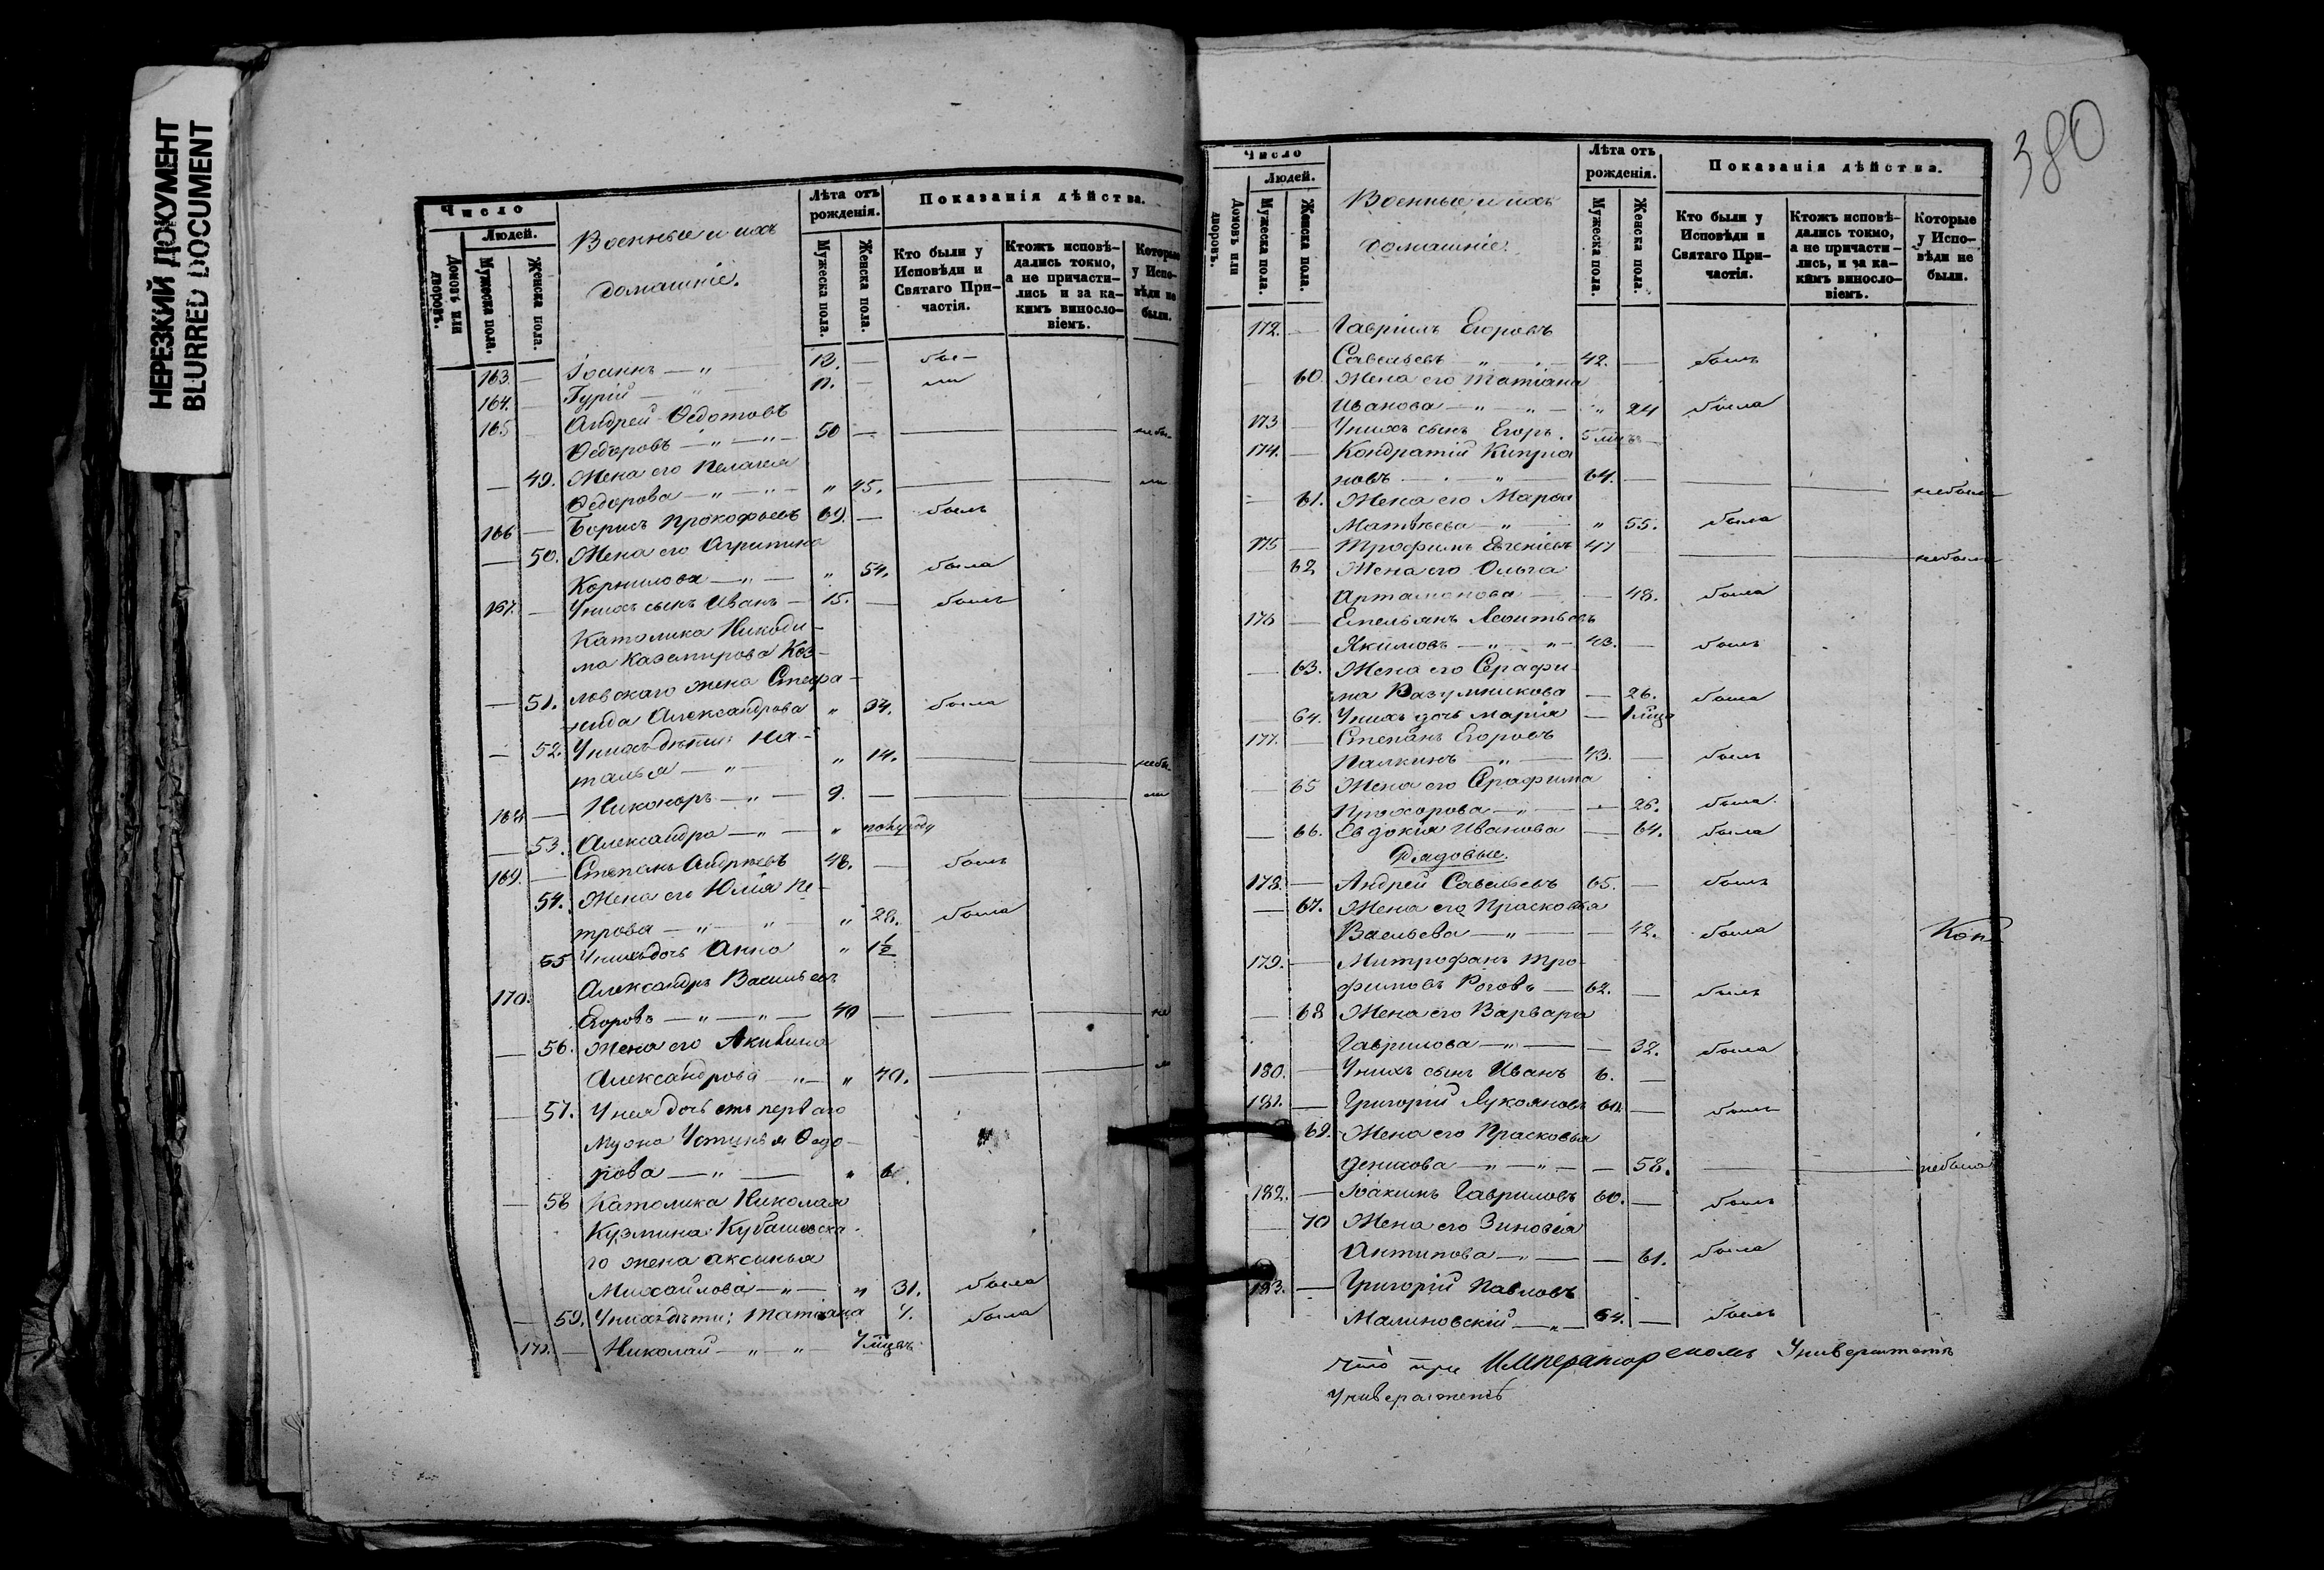 НЕРЕЗКИЙ ДОКУМЕНТ
BLURRED DOCUMENT
Число
Людей.
Домовъ или дворовъ.
Мужеска пола.
Женска пола.
Военные и ихъ
домашніе.
Лѣта отъ рожденія.
Мужеска пола.
Женска пола.
Показанія дѣйства.
Кто были у Исповѣди и Святаго Причастія.
Ктожъ исповѣдались токмо, а не причастились и за какимъ винословіемъ.
Которые у Исповѣди не были.
163. — Іоаннъ — " — 12. —
164. — Гурій — " — 11. —
165 — Андрей Ѳедотовъ
Ѳедоровъ — " — " — 50 —
— 49. Жена его Пелагея
Ѳедорова — " — " — " 45.
166 — Борисъ Прокофьевъ 69. — былъ
— 50. Жена его Агрипина
Корнилова — " — " 54. была
167. — У нихъ сынъ Иванъ — 15. — былъ
Католика Никоди-
ма Каземирова Коз-
— 51. ловскаго жена Стефа-
нида Александрова " 34. была
— 52. У нихъ дѣти: На-
талья — " — " 14.
168 — Никаноръ — " — 9. —
— 53. Александра — " — " полугоду
169. — Степанъ Андреевъ 48. — былъ
54. Жена его Юлія Пе-
трова — " — " — " 28. была
55 У нихъ дочь Анна " 1½
170. Александръ Васильевъ
Егоровъ — " — " — 40 —
— 56. Жена его Акилина
Александрова — " — " 40.
— 57. У нея дочь отъ перваго
мужа Устинья Ѳедо-
рова — " — " 6.
— 58 Католика Николая
Кузмина Кубашевска-
го жена Аксинья
Михайлова — " — " 31. была
— 59. У нихъ дѣти: Татіана 7. была
171. — Николай — " — " — 7 мцевъ
380
Число
Людей.
Домовъ или дворовъ.
Мужеска пола.
Женска пола.
Военные и ихъ
домашніе.
Лѣта отъ рожденія.
Мужеска пола.
Женска пола.
Показанія дѣйства.
Кто были у Исповѣди и Святаго Причастія.
Ктожъ исповѣдались токмо, а не причастились, и за какимъ винословіемъ.
Которые у Исповѣди не были.
172. — Гавріилъ Егоровъ
Савельевъ — " — 42. — былъ
— 60. Жена его Татіана
Иванова — " — " — " 24 была
173 — У нихъ сынъ Егоръ. 5 мцъ —
174. — Кондратій Кипріа
новъ — " — 64. — небылъ
— 61. Жена его Марья
Матвѣева — " — " 55. была
175 — Трофимъ Евгеніевъ 47 — небылъ
— 62 Жена его Ольга
Артамонова — — 48. была
176 — Емельянъ Леонтьевъ
Якимовъ — " — " — 43. — былъ
— 63. Жена его Серафи-
ма Разумникова — 26. была
— 64. У нихъ дочь Марія —
177. — Степанъ Егоровъ
Палкинъ — " — 43. — былъ
— 65 Жена его Серафима
Прохорова — " — 26. была
— 66. Евдокія Иванова — 64. была
Рядовые.
178. — Андрей Савельевъ 65. — былъ
— 67. Жена его Прасковья
Васильева — " — — 42. была
179. — Митрофанъ Тро-
фимовъ Роговъ — 62. — былъ
— 68 Жена его Варвара
Гаврилова — " — — 32. была
180. — У нихъ сынъ Иванъ 6. —
181. — Григорій Лукояновъ 60. — былъ
69. Жена его Прасковья
Денисова — " — " — — 58. небыла
182. — Іоакимъ Гавриловъ 60. — былъ
70 Жена его Зиновія
Антипова — " — — 61. была
183. — Григорій Павловъ
Малиновскій — " — 64. — былъ
что при Императорскомъ Университетѣ
Университетѣ